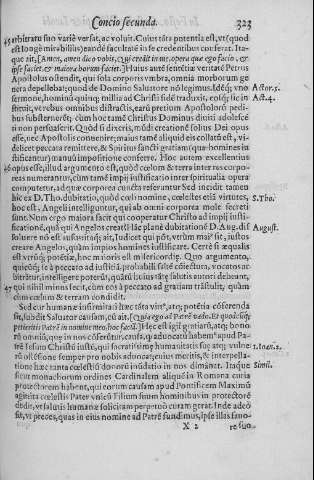 Concio secunda. 323
45 arbitratu suo varie versat, ac voluit. Cuius tāta potentia est, vt (quod
est longè mirabilius) eandē facultatē in se credentibus conferat. Ita-
que ait, [Amen, amen dico vobis, Qui credit in me, opera quæ ego facio, &
ipse faciet, & maiora horum faciet.] Huius autē sententiæ veritatē Petrus
Apostolus ostendit, qui sola corporis vmbra, omnia morborum ge
nera depellebat; quod de Domino Saluatore nō legimus. Idéq; vno Actor.5.
sermone, hominū quinq; millia ad Christi fidē traduxit, eosq; ſic in Act.4.
stituit, vt rebus omnibus distractis, earū pretium Apostolorū pedi-
bus substernerēt; cùm hoc tamē Christus Dominus diuiti adolescē
ti non persuaserit. Quòd si dixeris, mūdi creationē solius Dei opus
esse, nec Apostolis conuenire; maius tamē aliquid eis collatū est, vi-
delicet peccata remittere, & Spiritus sancti gratiam (qua homines in
stificantur) manuū impositione conferre. Hoc autem excellentius
46 opus esse, illud argumento est, quòd cœlum & terra inter res corpo-
reas numerantur, cùm tamē impij iustificatio inter spiritualia opera
computetur, ad quæ corporea cuncta referuntur Sed incidit tamen
hic ex D. Tho. dubitatio, quòd cœsi nomine, cœlestes etiā virtutes, S. Tho.
hoc est, Angeli intelliguntur, qui ab omni corporea mole secreti
sunt Num ergo maiora facit qui cooperatur Christo ad impij iusti-
ficationē, quā qui Angelos creat? Hāc planè dubitationē D. Aug. dis August.
soluere nō est ausus: itáq; ait, Iudicet qui pōt, vtrùm mai' sit, iustos
creare Angelos, quàm impios homines iustificare. Certè si æqualis
est vtrūq; potētiæ, hoc maioris est misericordię. Quo argumento,
quicūq; se à peccato ad iustitiā probabili saltē coiectura, vocatos ar-
bitrātur, intelligere poterūt, quātū huius tātę salutis autori debeant,
47 qui nihil minus fecit, cùm eos à peccato ad gratiam trāstulit, quàm
cùm cœlum & terram condidit.
Sed cur humanæ infirmitati hæc tāta virt', atq; potētia cōferenda
sit, subdit Saluator causam, cū ait. [Quia ego ad Patrē vado. Et quodcūq;
petieritis Patrē in nomine meo, hoc faciā.] Hęc est igit gratiarū, atq; bono
rū omniū, quę in nos cōferūtur, causa, quia aduocatū habem' apud Pa-
trē Iesum Christū iustū, qui sacratissimę humanitatis suę atq; vulne 1. Ioan.2.
rū ostēsione semper pro nobis aduocat; cuius meritis, & interpella-
tione hæc tanta cœlestiū donorū inūdatio in nos dimānat. Itaque Simil.
sicut monachorum ordines Cardinalem aliquē in Romana curia
protectorem habent, qui eorum causam apud Pontificem Maximū
agat; ita cœlestis Pater vnicū Filium suum hominibus in protectorē
dedit, vt salutis humanæ solicitam perpetuò curam gerat. Inde adeò
fit, vt preces, quas in eius nomine ad Patrē fundimus, ipse illas fauo-
X 2 re suo